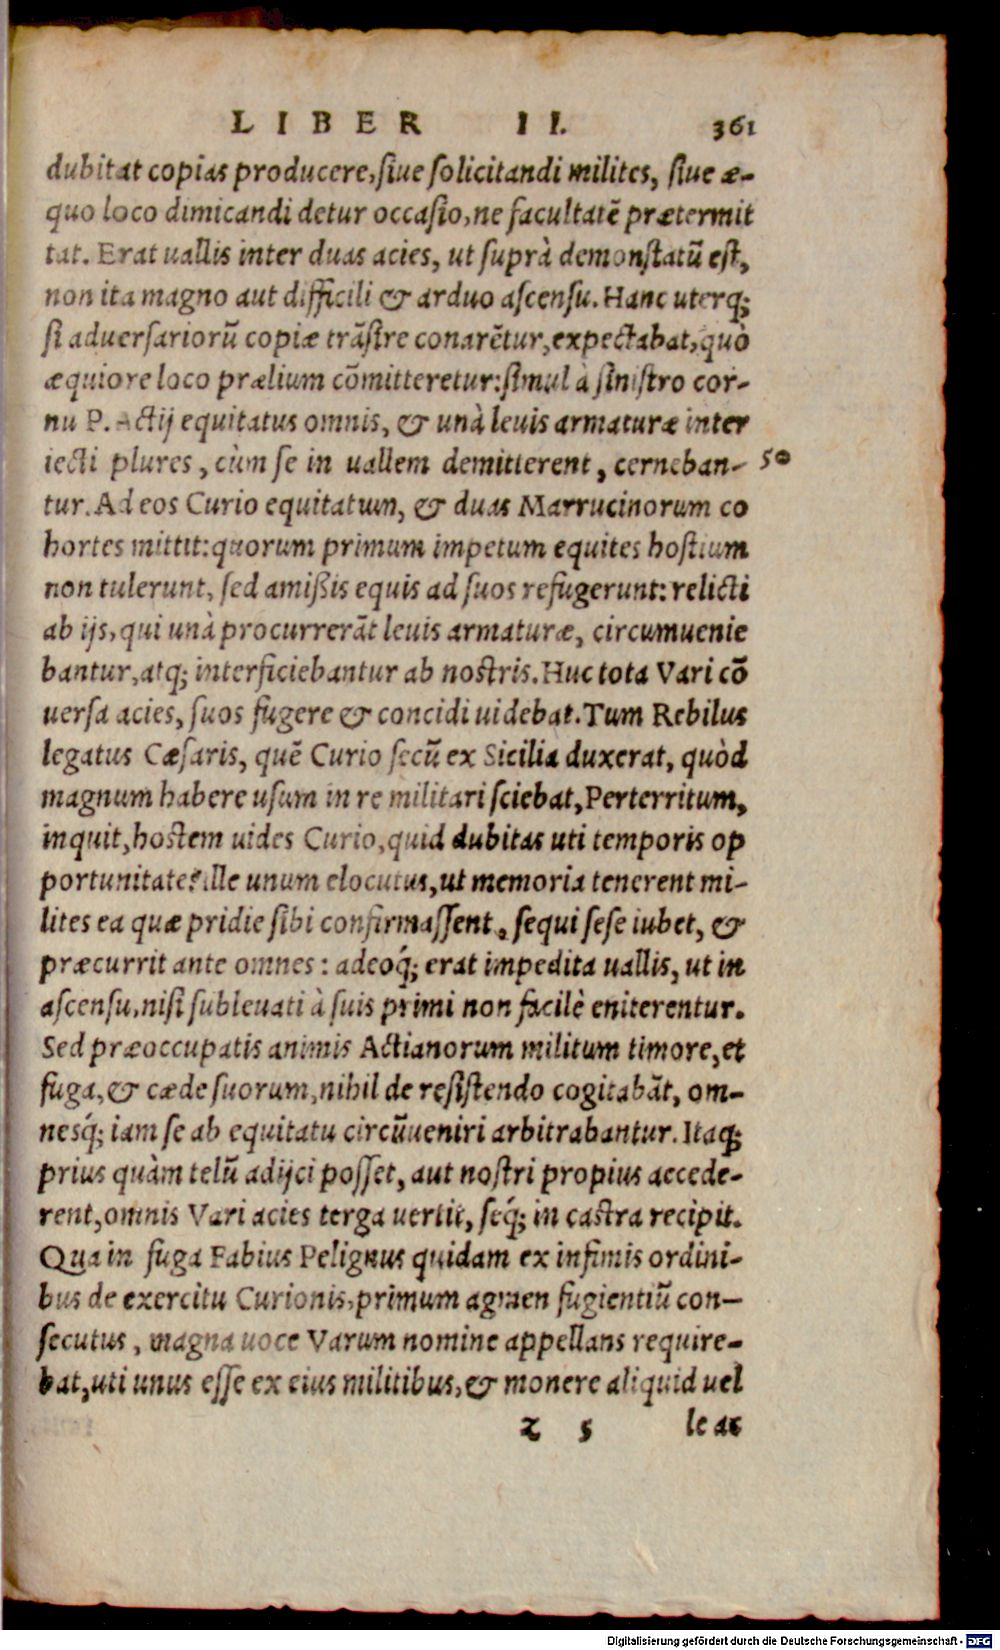 LIBER II. 361
dubitat copias producere, siue solicitandi milites, siue æ-
quo loco dimicandi detur occasio, ne facultatē prætermit
tat. Erat uallis inter duas acies, ut suprà demonstatū est,
non ita magno aut difficili & arduo ascensu. Hanc uterq;
si aduersariorū copiæ trāsire conarētur, expectabat, quò
æquiore loco prælium cōmitteretur: simul à sinistro cor-
nu P. Actij equitatus omnis, & unà leuis armaturæ inter
iecti plures, cùm se in uallem demitterent, cerneban- 50
tur. Ad eos Curio equitatum, & duas Marrucinorum co
hortes mittit: quorum primum impetum equites hostium
non tulerunt, sed amißis equis ad suos refugerunt: relicti
ab ijs, qui unà procurrerāt leuis armaturæ, circumuenie
bantur, atq; interficiebantur ab nostris. Huc tota Vari cō
uersa acies, suos fugere & concidi uidebat. Tum Rebilus
legatus Cæsaris, quē Curio secū ex Sicilia duxerat, quòd
magnum habere usum in re militari sciebat, Perterritum,
inquit, hostem uides Curio, quid dubitas uti temporis op
portunitate? ille unum elocutus, ut memoria tenerent mi-
lites ea quæ pridie sibi confirmassent, sequi sese iubet, &
præcurrit ante omnes: adeoq́; erat impedita uallis, ut in
ascensu, nisi subleuati à suis primi non facilè eniterentur.
Sed præoccupatis animis Actianorum militum timore, et
fuga, & cæde suorum, nihil de resistendo cogitabāt, om-
nesq́; iam se ab equitatu circūueniri arbitrabantur. Itaq;
prius quàm telū adijci posset, aut nostri propius accede-
rent, omnis Vari acies terga uertit, seq́; in castra recipit.
Qua in fuga Fabius Pelignus quidam ex infimis ordini-
bus de exercitu Curionis, primum agmen fugientiū con-
secutus, magna uoce Varum nomine appellans require-
bat, uti unus esse ex eius militibus, & monere aliquid uel
z 5 le ac
Digitalisierung gefördert durch die Deutsche Forschungsgemeinschaft - DFG